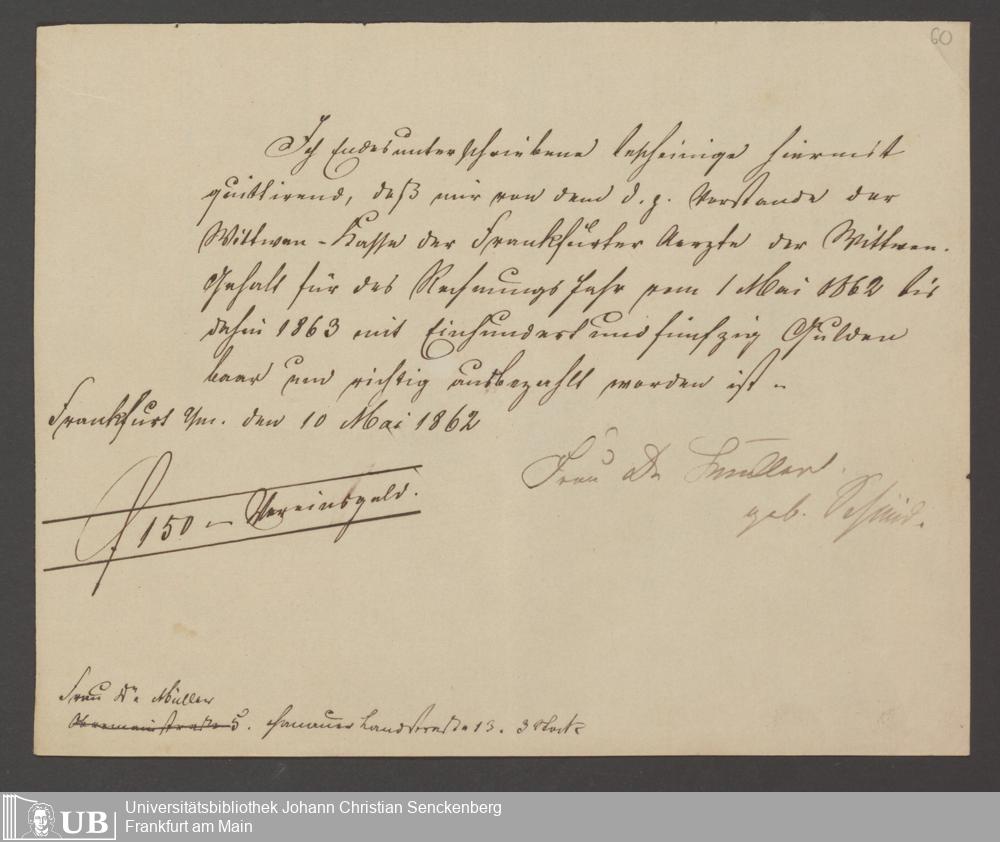 60
Ich Endesunterschriebene bescheinige hiermit
quittirend, daß mir von dem d. z. Vorstande der
Wittwen-Kasse der Frankfurter Aerzte der Wittwen-
Gehalt für das Rechnungs Jahr vom 1 Mai 1862 bis
dahin 1863 mit Einhundert und fünfzig Gulden
baar und richtig ausbezahlt worden ist –
Frankfurt a/m. den 10 Mai 1862
Frau Dr Müller.
geb.
f 150 – Vereinsgeld.
Frau Dr. Müller
Obermainstraße 5. Hanauer Landstraße 13. 3 Stock
UB Universitätsbibliothek Johann Christian Senckenberg
Frankfurt am Main